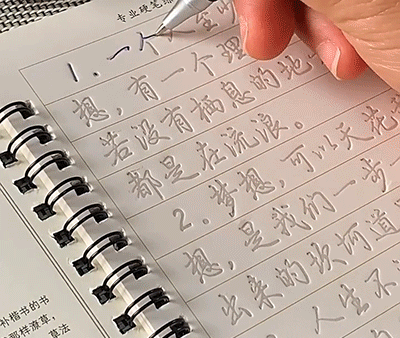 专业硬笔
1. 一个人生
想，有一个理
若没有栖息的地
都是在流浪。
2. 梦想，可以天花
想，是我们一步一
出来的坎坷道
人生不
补楷书的书
那样潦草，
草法